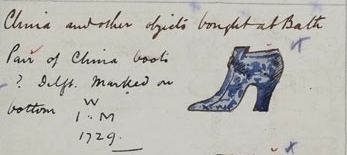 China and other objects bought at Bath
Pair of China boots
? Delft. Marked on
bottom W
I · M
1729.